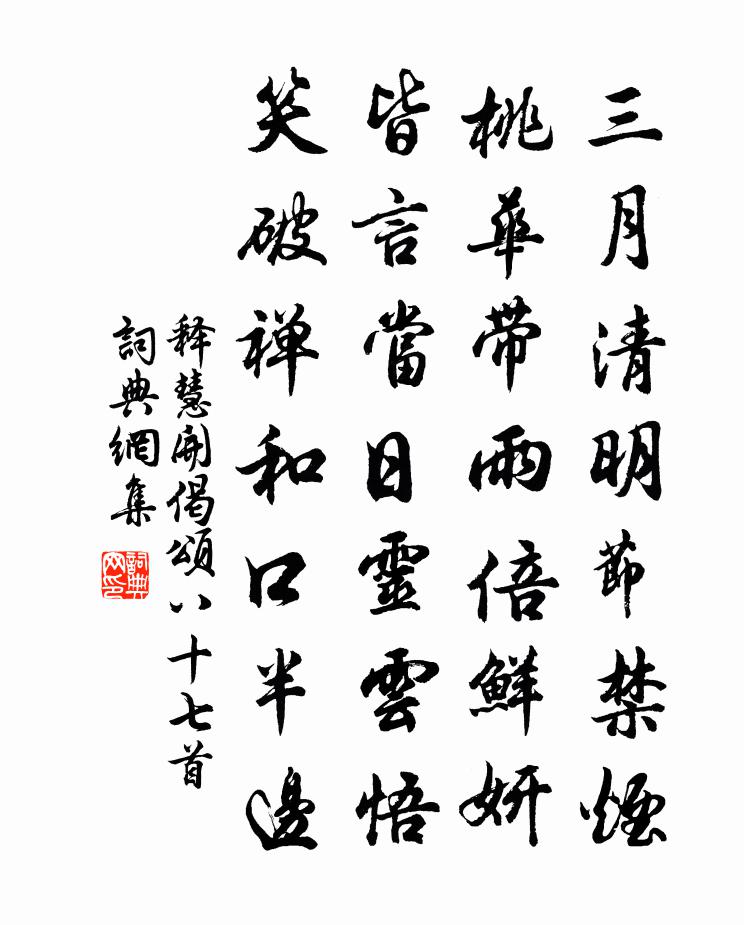 三月清明節禁煙
桃華帶雨倍鮮妍
皆言當日靈雲悟
笑破禅和口半邊
释慧開偈頌八十七首
詞典網集
詞典网印